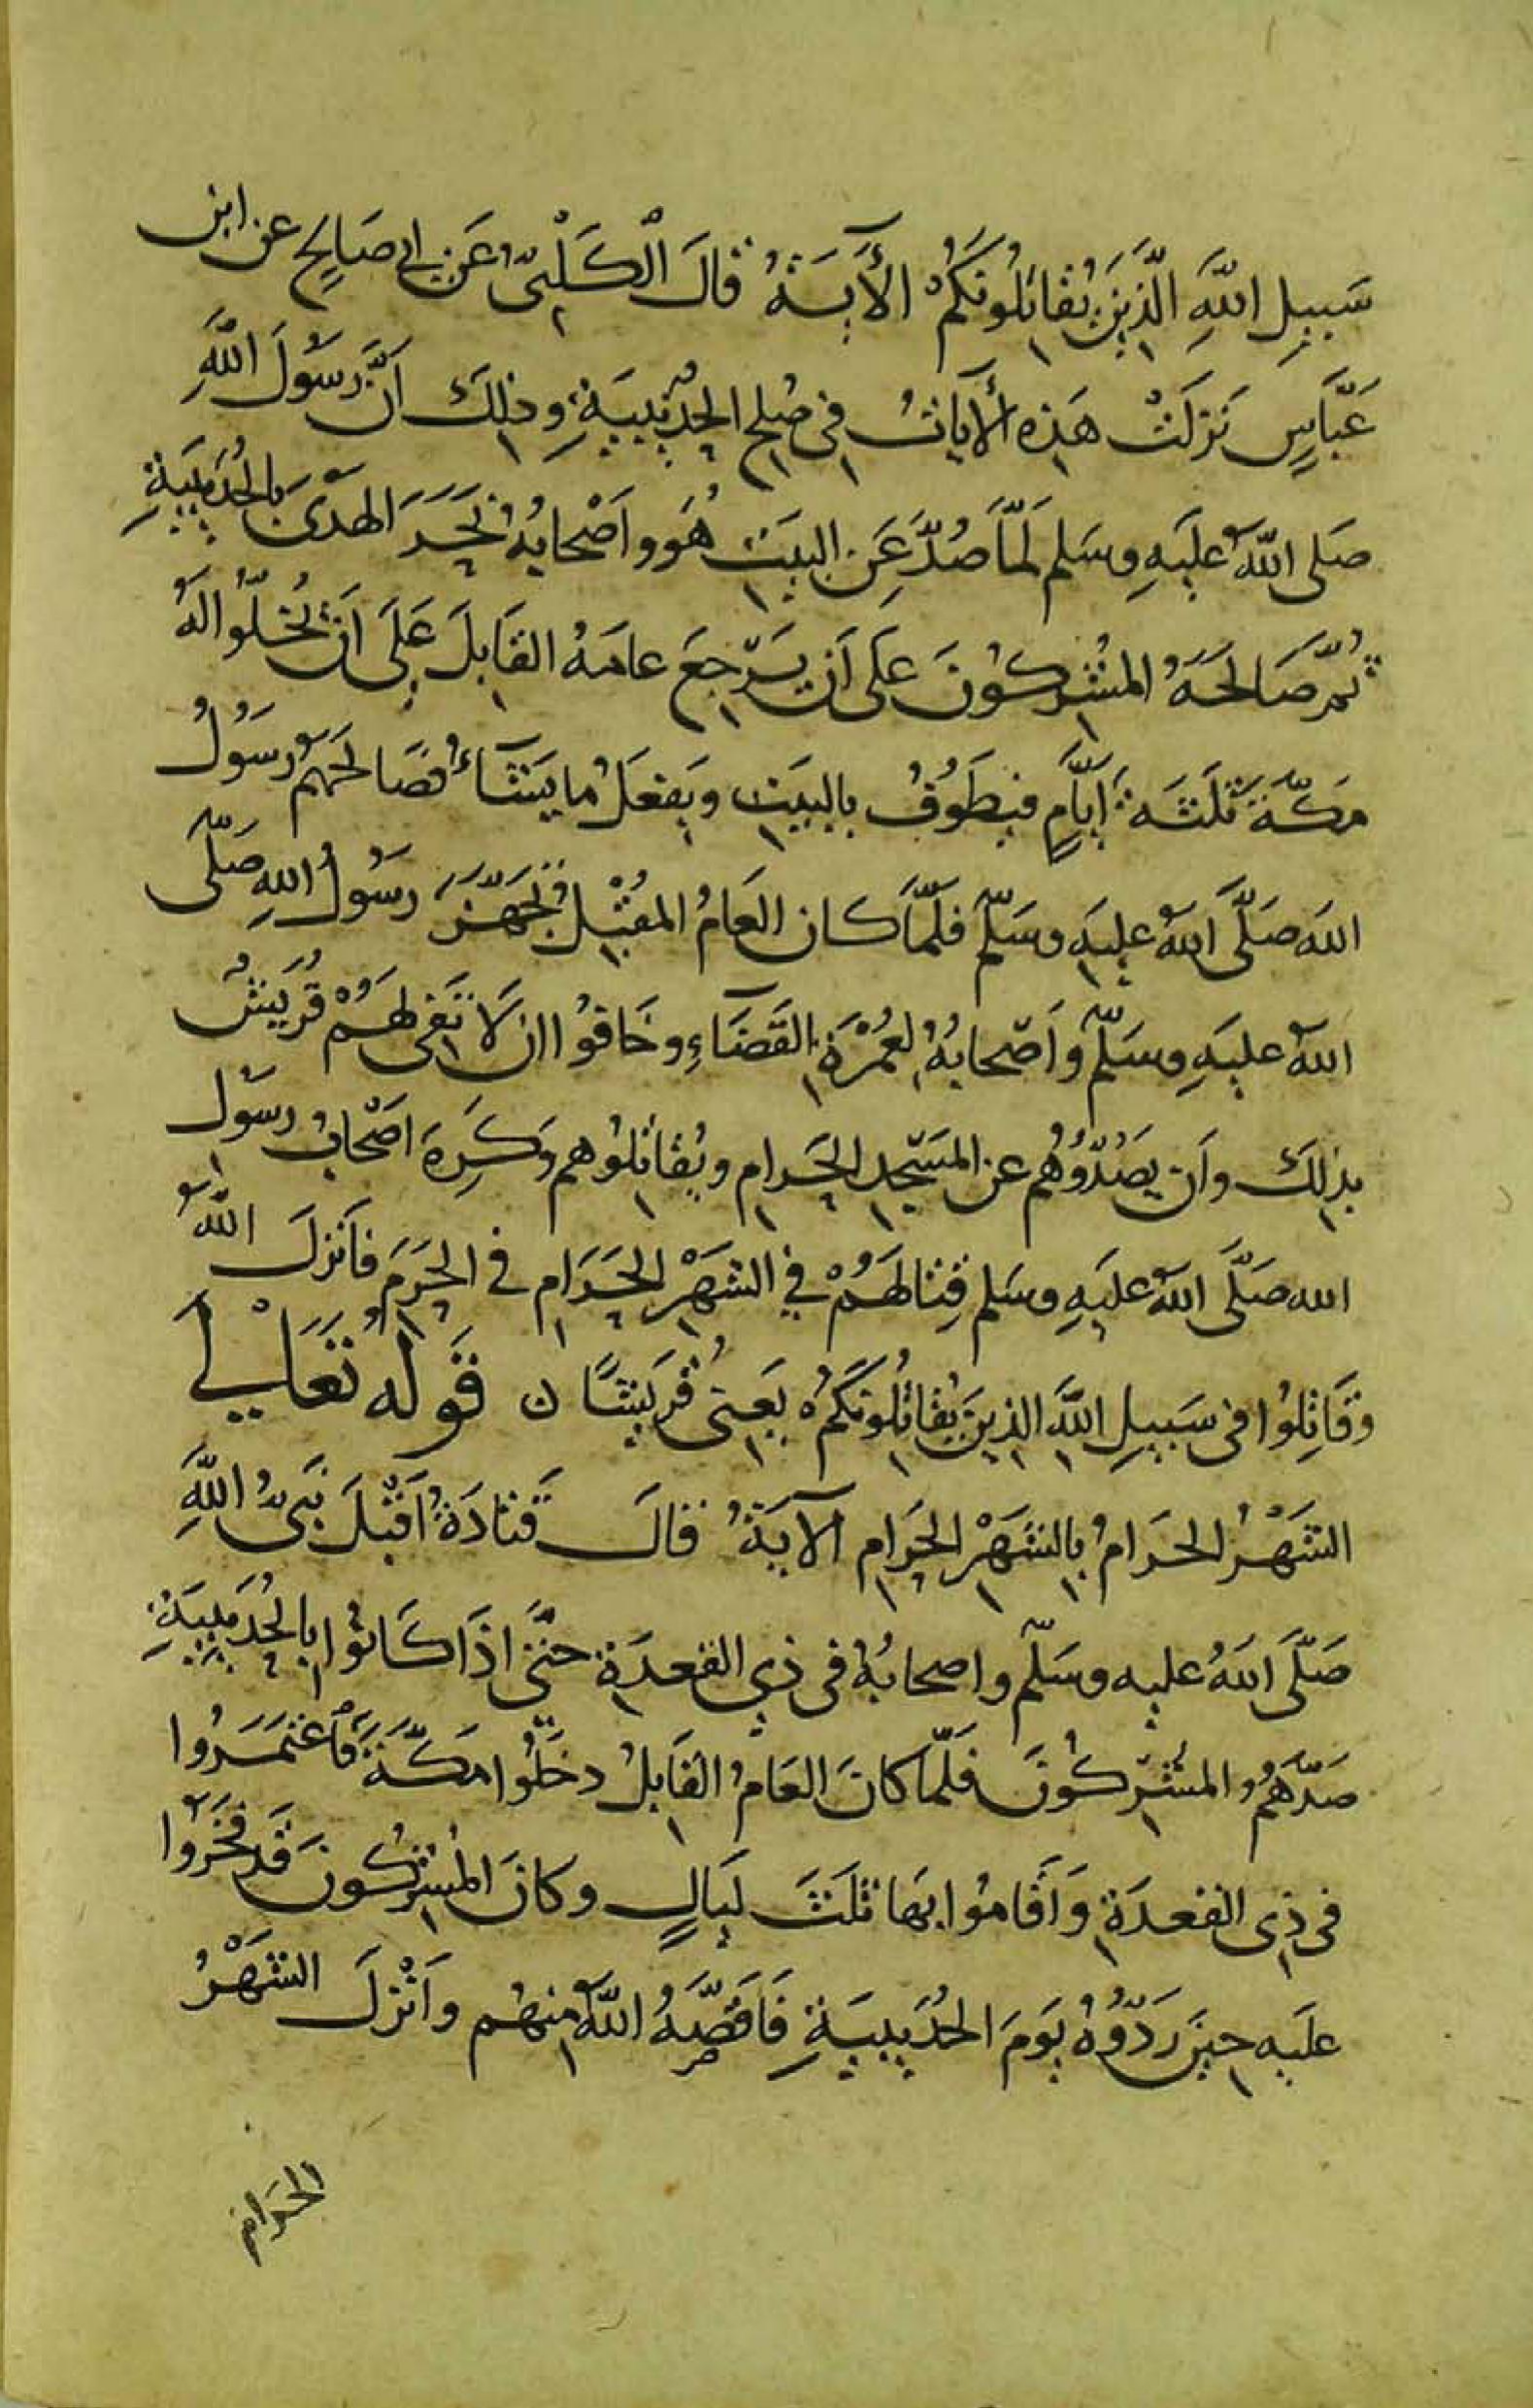 سَبِيلِ اللهِ الَّذِينَ يُقَاتِلُونَكُمْ الْأَيَةُ قَالَ الْكَلْبِيُّ عَنْ أبي صَالِحٍ عن ابن
عَبَّاسٍ نَزَلَتْ هَذِهِ الأيَاتُ فِي صُلحِ الحُدَيْبِيَةِ وذلِكَ اَنَّ رَسُولَ اللهِ
صَلى اللهُ عليَهِ وسَلم لَمَّا صُدَّ عَنِ البيَتِ هُوَ واَصْحابُهُ نَحَرَ الهَدْىَ بالحُدَيبيَةِ
ثُمَّ صَالَحَهُ المُشْرِكُونَ عَلَى اَن يَرْجِعَ عامَهُ القَابِلَ عَلَى اَنْ يُخلّوا لهُ
مَكَّةَ ثَلثَةَ اَيَّامٍ فيَطَوُفُ بالبيَتِ ويَفعَلُ ما يَشَآءُ فصَالحَهُم رَسُولُ
الله صَلَّى اللهُ عليَهِ وسَلّم فلَمَّا كان العَامُ المقُبْلُ تَجَهَّزَ رسُولُ اللهِ صَلّى
اللهُ عليَهِ وسَلّم واَصْحابُهُ لعُمْرَةِ القَضَآءِ وخَافوُا ان لَا تَفِى لهَمُ قُرَيشٌ
بذلِكَ واَن يصَدُّوُهُم عن المَسْجِدِ الحَرامِ ويُقَاتِلُوهم وَكَرِهَ اصْحَابُ رسُول
الله صَلَّى اللهُ عليَهِ وسَلم قِتالَهَمُ في الشهَرْ الحَرَامِ في الحَرَمِ فاَنزلَ اللهُ
وَقَاتِلُوا فى سَبيلِ اللهِ الذينَ يُقَاتِلُونَكُمْ يَعنِى قُريَشًا ن قَوله تَعَالِى
الشَهْرُ الحَرَامُ بالشَهْرِ الحَرَامِ الآيَةُ قالَ قَتادَةُ اَقْبَلَ نَبِىُّ اللهِ
صَلَّى اللهُ عليه وسَلّم واصحابُهُ فى ذِي القعدَةِ حتَّى اذَا كَانُوا بالحُدَيبيَةِ
صَدَّهَمُ المشُرِكُونَ فلَمّا كانَ العَامُ القَابِلُ دخَلُوا مَكَّةَ فاَعْتَمَرُوا
فى ذِى القعدَةِ وَاَقَامُوا بهَا ثلَثَ لَيَالٍ وكانَ المُشْرِكُونَ قَد فَخَرُوا
عليَه حِينَ رَدُّوُهُ يَومَ الحُدَيبيَةِ فَاَقَصَّهُ اللهُ منِهُم واَنْزلَ الشَهْرُ
الحَرَامُ